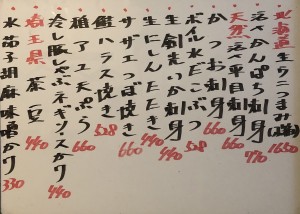 北海道 生うにつまみ(塩) 1650
活〆かんぱち刺身 770
天然 活〆平目刺身 660
かつお刺身 660
ボイル水だこぶつ 528
生剣先いか刺身 440
生にしんたたき 440
サザエつぼ焼き 660
鮭ハラス焼き 528
稚アユ天ぷら 660
冷し豚しゃぶネギソースがけ 440
埼玉県 茶豆 440
水茄子胡麻味噌がけ 330